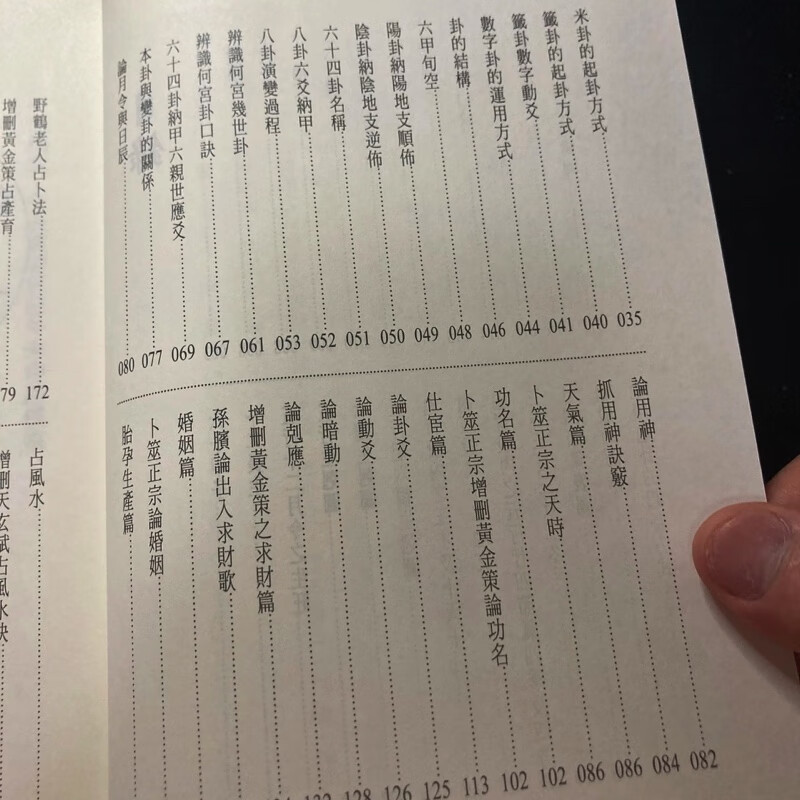 米卦的起卦方式……035
籤卦的起卦方式……040
籤卦數字動爻……041
數字卦的運用方式……044
卦的結構……046
六甲旬空……048
陽卦納陽地支順佈……049
陰卦納陰地支逆佈……050
六十四卦名稱……051
八卦六爻納甲……052
八卦演變過程……053
辨識何宮幾世卦……061
辨識何宮卦口訣……067
六十四卦納甲六親世應爻……069
本卦與變卦的關係……077
論月令與日辰……080
論用神……082
抓用神訣竅……084
天氣篇……086
卜筮正宗之天時……086
功名篇……102
卜筮正宗增刪黃金策論功名……102
仕宦篇……113
論卦爻……125
論動爻……126
論暗動……128
論剋應……132
增刪黃金策之求財篇……
孫臏論出入求財歌……
婚姻篇……
卜筮正宗論婚姻……
胎孕生產篇……
野鶴老人占卜法……172
增刪黃金策占產育……79
占風水……
增刪天玄賦占風水訣……